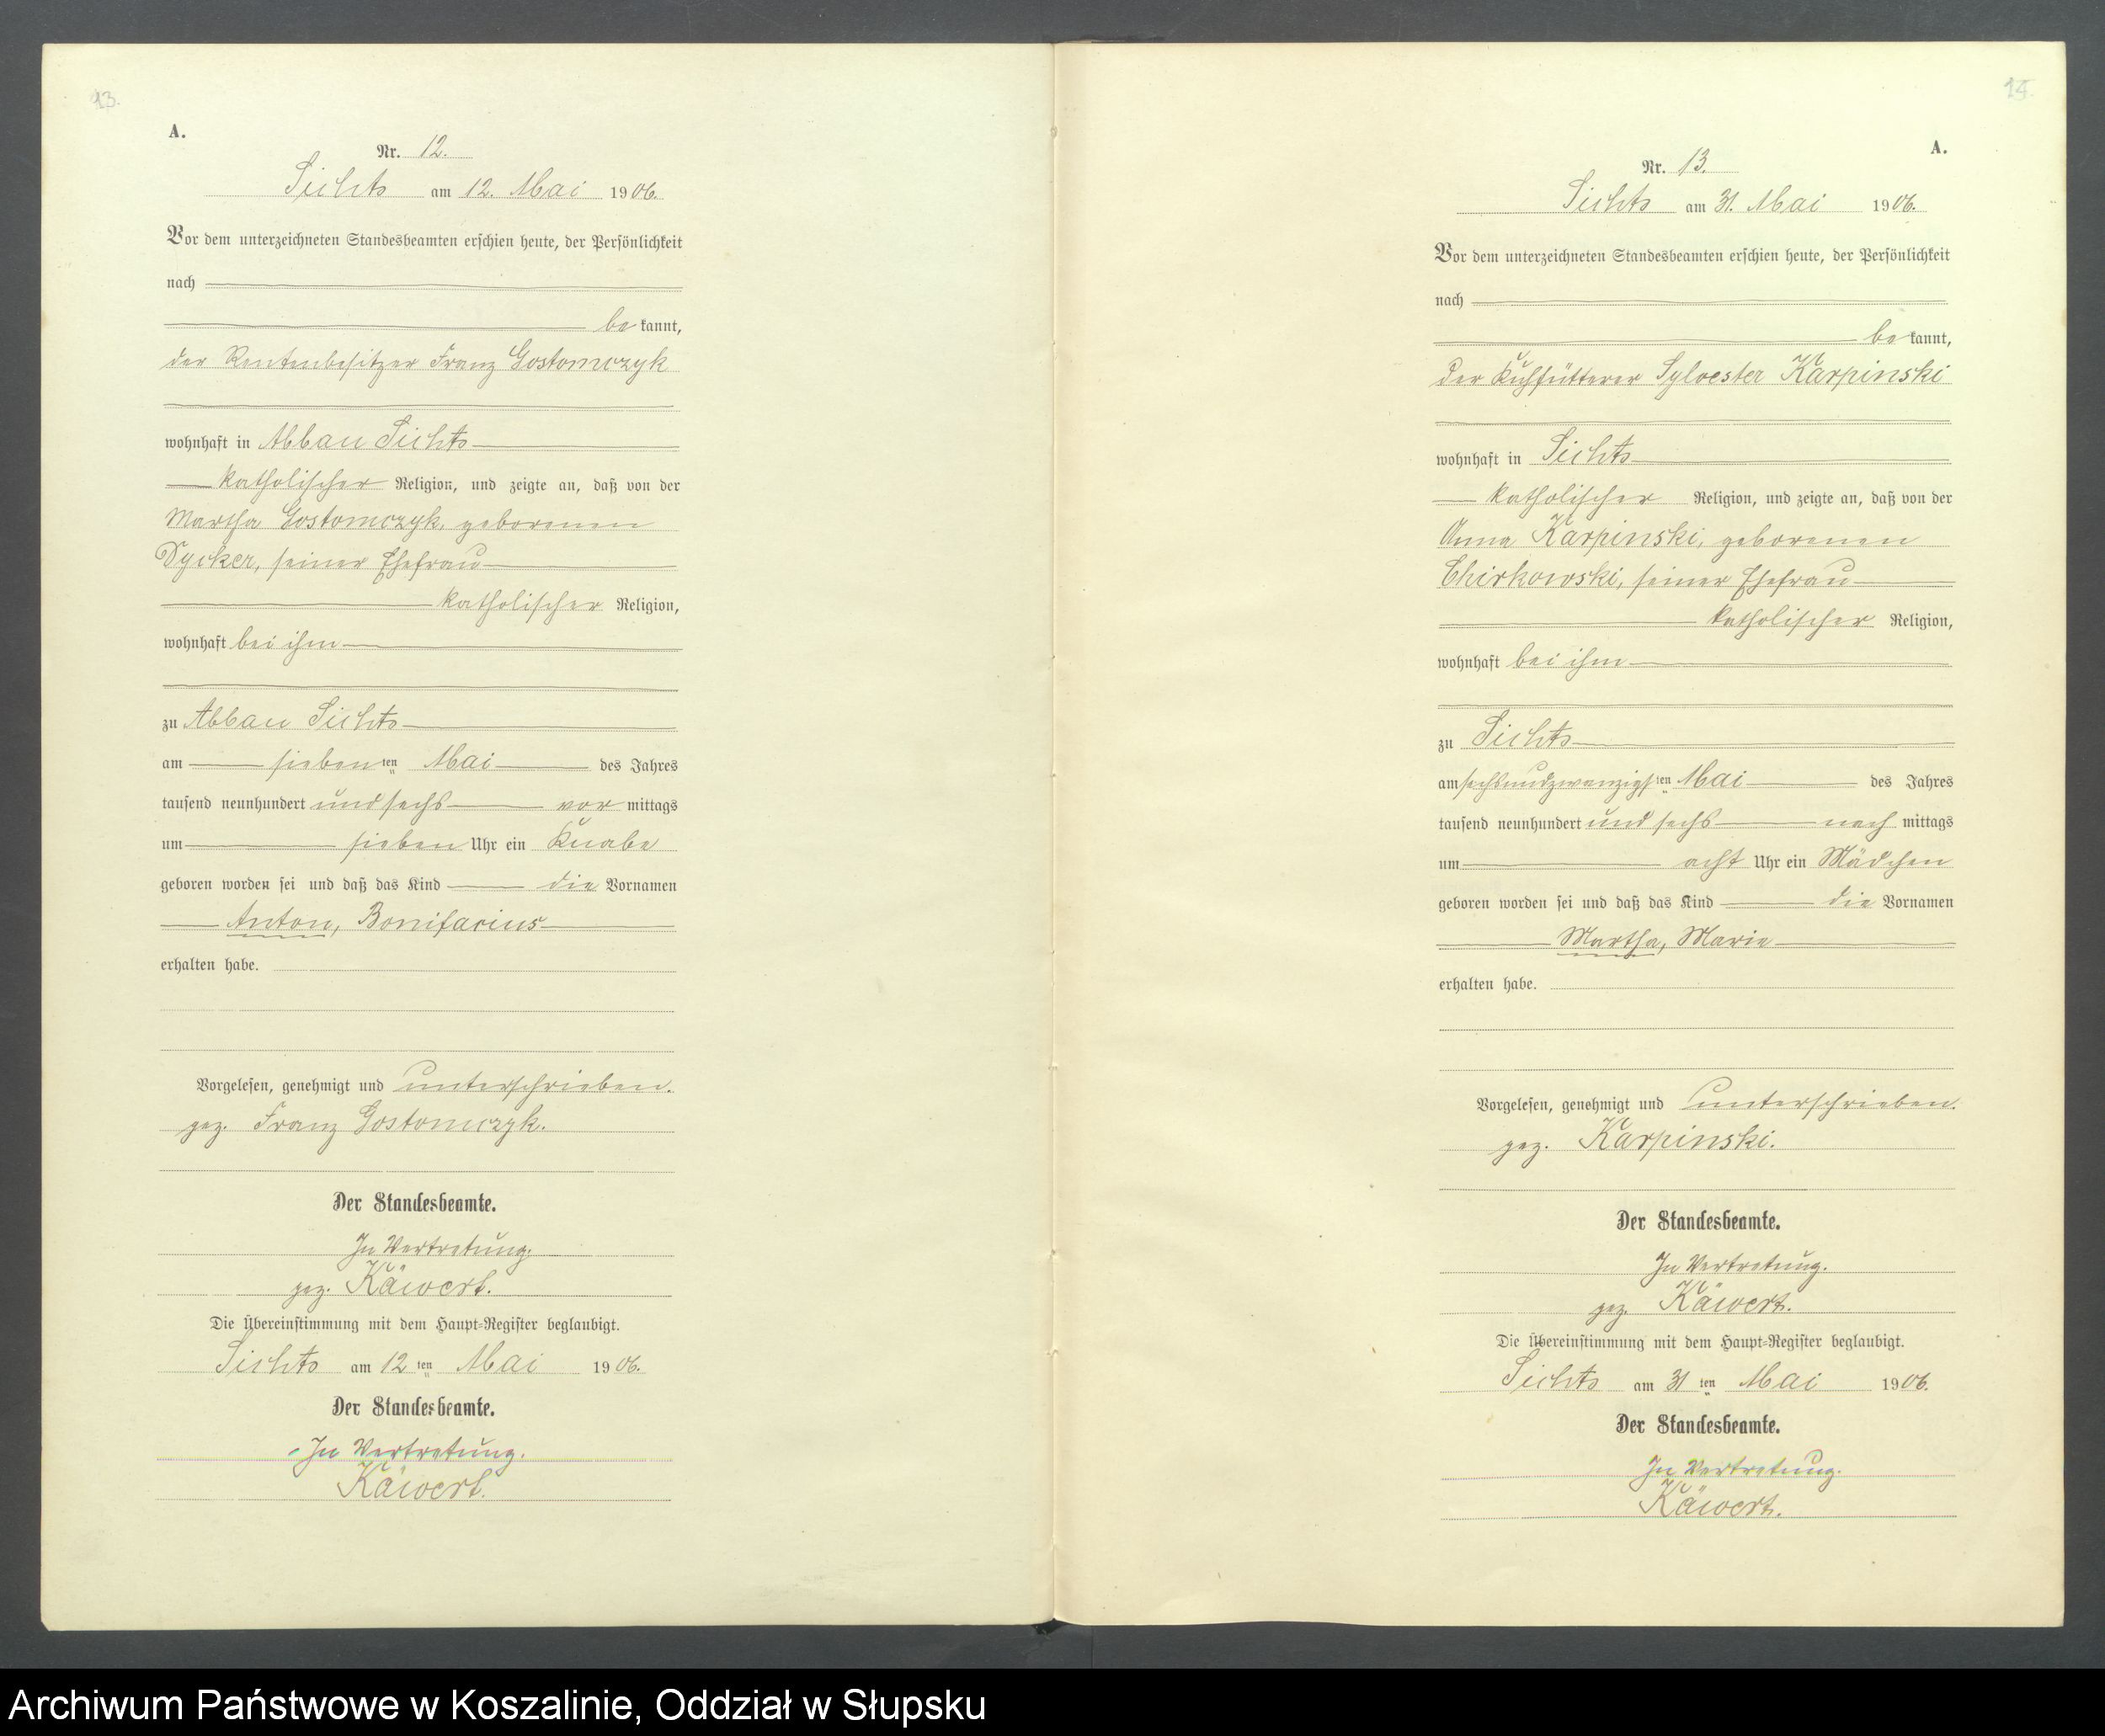 13.
A.
Nr. 12.
Sichts am 12. Mai 1906.
Vor dem unterzeichneten Standesbeamten erschien heute, der Persönlichkeit
nach
be kannt,
der Rentenbesitzer Franz Gostomczyk
wohnhaft in Abbau Sichts
katholischer Religion, und zeigte an, daß von der
Martha Gostomczyk, geborenen
Dycker, seiner Ehefrau
katholischer Religion,
wohnhaft bei ihm
zu Abbau Sichts
am siebenten Mai des Jahres
tausend neunhundert und sechs vor mittags
um sieben Uhr ein Knabe
geboren worden sei und daß das Kind die Vornamen
Anton, Bonifacius
erhalten habe.
Vorgelesen, genehmigt und unterschrieben.
gez. Franz Gostomczyk.
Der Standesbeamte.
In Vertretung.
gez. Käwert.
Die Übereinstimmung mit dem Haupt-Register beglaubigt.
Sichts am 12 ten Mai 1906.
Der Standesbeamte.
In Vertretung.
Käwert.
14.
A.
Nr. 13.
Sichts am 31. Mai 1906.
Vor dem unterzeichneten Standesbeamten erschien heute, der Persönlichkeit
nach
be kannt,
der Kuhfütterer Sylvester Karpinski
wohnhaft in Sichts
katholischer Religion, und zeigte an, daß von der
Anna Karpinski, geborenen
Chirkowski, seiner Ehefrau
katholischer Religion,
wohnhaft bei ihm
zu Sichts
am sechsundzwanzigsten Mai des Jahres
tausend neunhundert und sechs nach mittags
um acht Uhr ein Mädchen
geboren worden sei und daß das Kind die Vornamen
Martha, Marie
erhalten habe.
Vorgelesen, genehmigt und unterschrieben.
gez. Karpinski.
Der Standesbeamte.
In Vertretung.
gez. Käwert.
Die Übereinstimmung mit dem Haupt-Register beglaubigt.
Sichts am 31 ten Mai 1906.
Der Standesbeamte.
In Vertretung.
Käwert.
Archiwum Państwowe w Koszalinie, Oddział w Słupsku